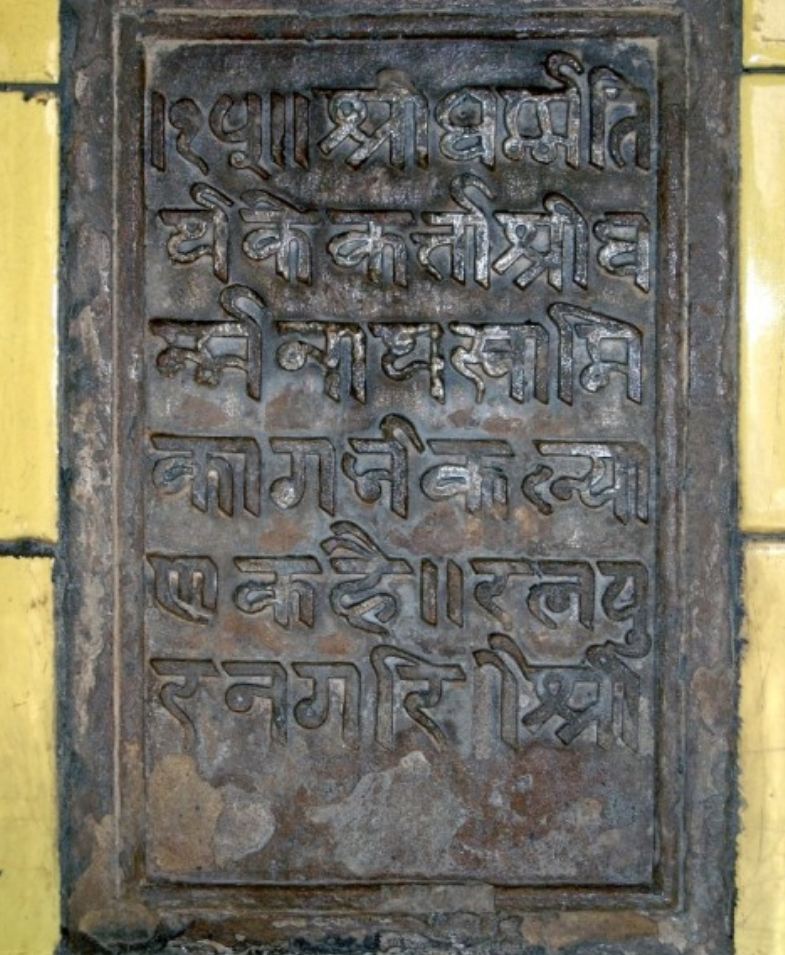 ।१५॥ श्रीधर्म्मति
र्थ के कर्त्ता श्रीध
र्म्म नाथ स्वामि
का गर्भ कल्या
ण क है ॥ रत्नपु
र नगरि । श्री